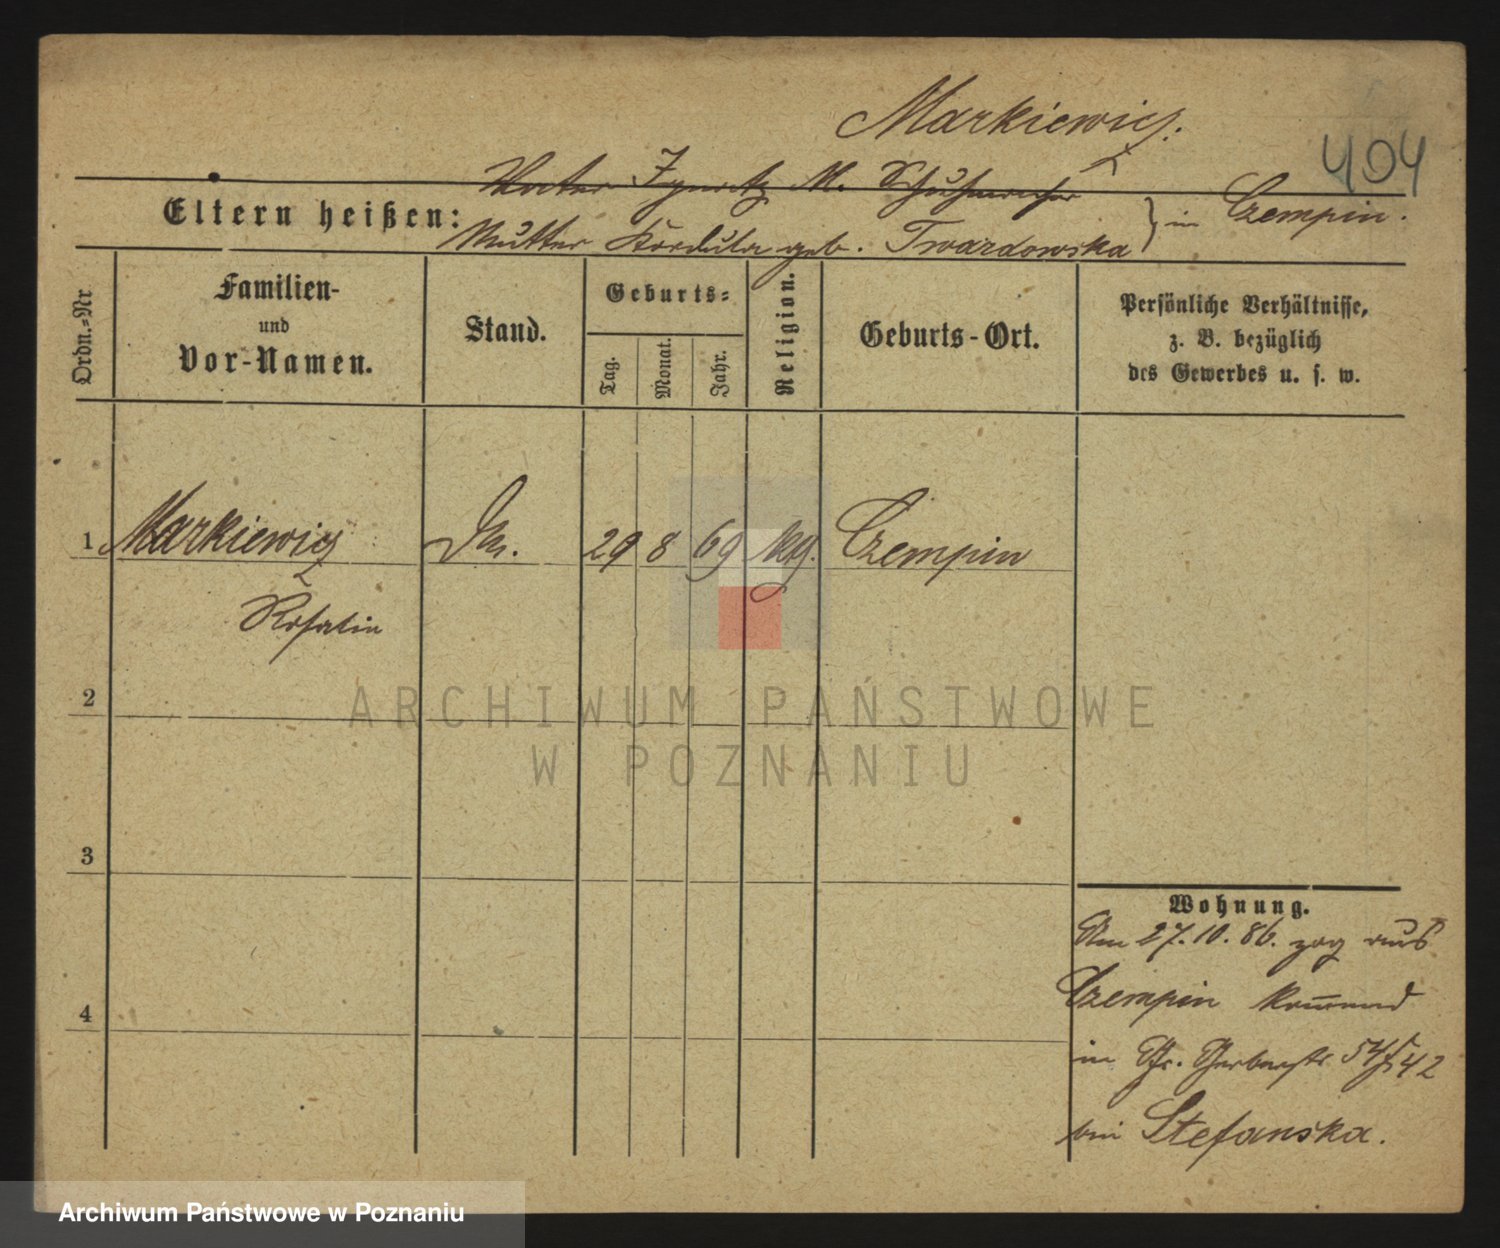 Markiewicz.
404
Vater Ignatz M. Schuhmacher
Eltern heißen:
Mutter Kordula geb. Twardowska } in Czempin.
Ordn.=Nr
Familien-
und
Vor-Namen.
Stand.
Geburts=
Tag.
Monat.
Jahr.
Religion.
Geburts-Ort.
Persönliche Verhältnisse,
z. B. bezüglich
des Gewerbes u. s. w.
1 Markiewicz 29 8 69 Czempin
Rosalia
2
ARCHIWUM PAŃSTWOWE
W POZNANIU
3
Wohnung.
Am 27.10.86. zog aus
Czempin kommend
4
in 42
bei Stefanska.
Archiwum Państwowe w Poznaniu